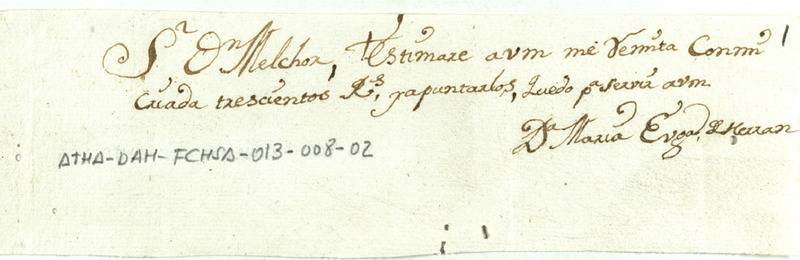 Sr Dn Melchor, Estimare a vm me Remita Con mi
Criada trescientos Rs, y apuntarlos, quedo pa servir a vm
Da Maria Euga de Herran
ATHA-DAH-FCHSA-013-008-02